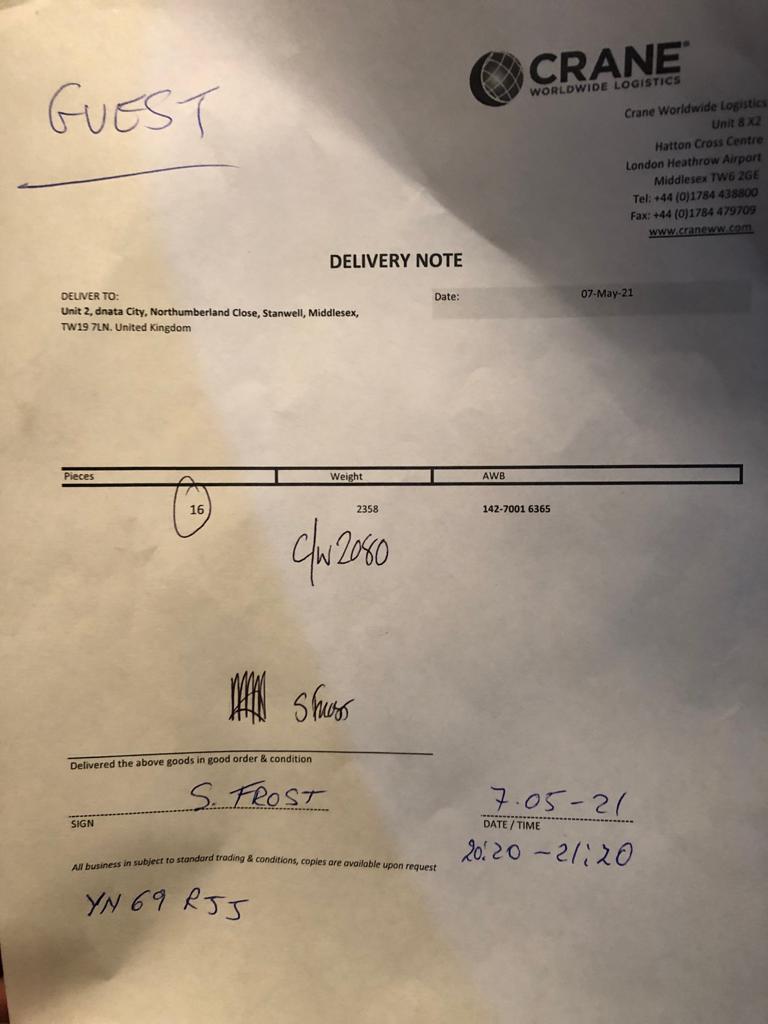 GUEST
CRANE
WORLDWIDE LOGISTICS
Crane Worldwide Logistics
Unit 8 X2
Hatton Cross Centre
London Heathrow Airport
Middlesex TW6 2GE
Tel: +44 (0)1784 438800
Fax: +44 (0)1784 479709
www.craneww.com
DELIVERY NOTE
DELIVER TO:
Unit 2, dnata City, Northumberland Close, Stanwell, Middlesex,
TW19 7LN. United Kingdom
Date: 07-May-21
Pieces Weight AWB
16 2358 142-7001 6365
C/W 2080
Delivered the above goods in good order & condition
S. FROST 7.05-21
SIGN DATE / TIME
20:20 - 21:20
All business in subject to standard trading & conditions, copies are available upon request
YN 69 RJJ